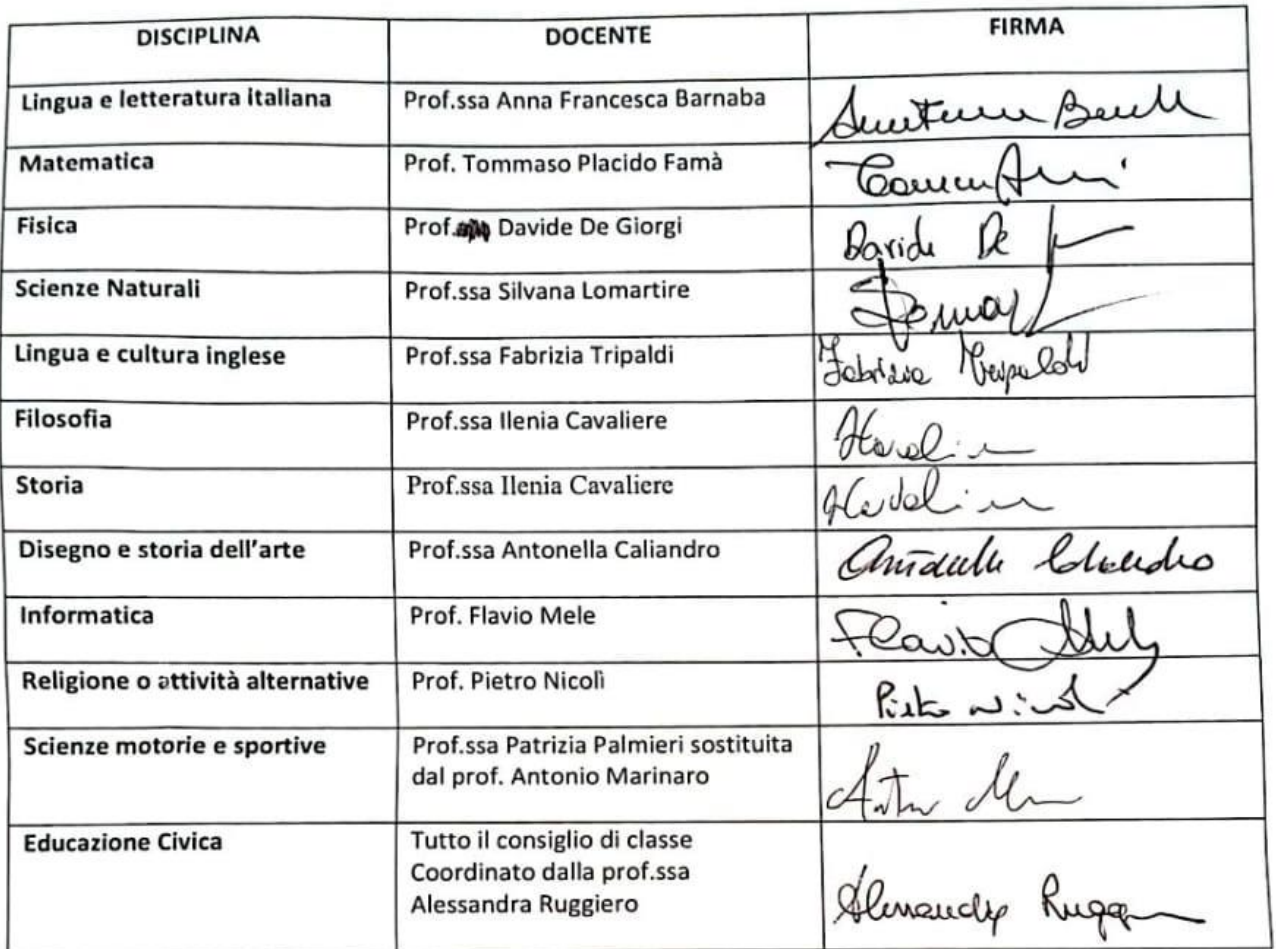 DISCIPLINA DOCENTE FIRMA
Lingua e letteratura italiana Prof.ssa Anna Francesca Barnaba
Matematica Prof. Tommaso Placido Famà
Fisica Prof. Davide De Giorgi Davide De
Scienze Naturali Prof.ssa Silvana Lomartire
Lingua e cultura inglese Prof.ssa Fabrizia Tripaldi Fabrizia Tripaldi
Filosofia Prof.ssa Ilenia Cavaliere
Storia Prof.ssa Ilenia Cavaliere
Disegno e storia dell'arte Prof.ssa Antonella Caliandro Antonella Caliandro
Informatica Prof. Flavio Mele Flavio Mele
Religione o attività alternative Prof. Pietro Nicolì Pietro Nicolì
Scienze motorie e sportive Prof.ssa Patrizia Palmieri sostituita
dal prof. Antonio Marinaro
Educazione Civica Tutto il consiglio di classe
Coordinato dalla prof.ssa
Alessandra Ruggiero Alessandra